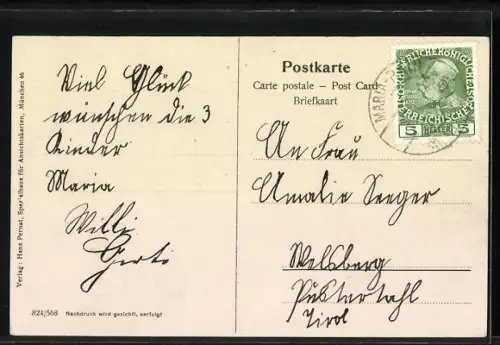 Viel Glück
wünschen die 3
Kinder
Maria
Willi
Gerti
Verlag: Hans Pernat, Spezialhaus für Ansichtskarten, München 46
824/508 Nachdruck wird gerichtl. verfolgt
Postkarte
Carte postale – Post Card
Briefkaart
MARIA
5 HELLER 5
An Frau
Amalie Seeger
Welsberg
Pustertahl
Tirol